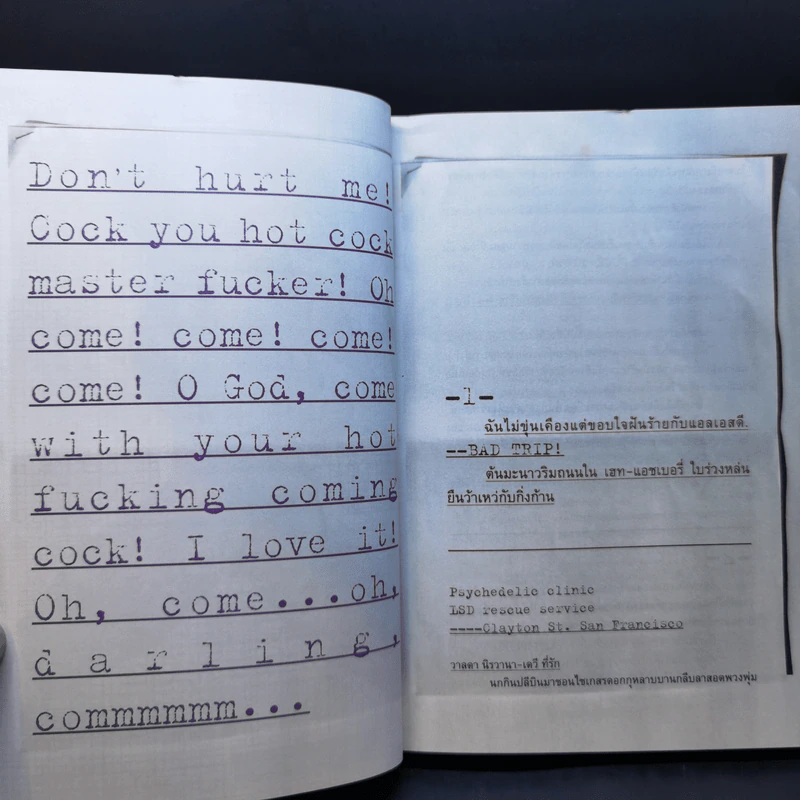 Don't hurt me!
Cock you hot cock
master fucker! Oh
come! come! come!
come! O God, come
with your hot
fucking coming
cock! I love it!
Oh, come...oh,
darling,
commmmmm...
-1-
ฉันไม่ขุ่นเคืองแต่ขอบใจฝันร้ายกับแอลเอสดี.
--BAD TRIP!
ต้นมะนาวริมถนนใน เฮท-แอชเบอรี่ ใบร่วงหล่น
ยืนว้าเหว่กับกิ่งก้าน
Psychedelic clinic
LSD rescue service
----Clayton St. San Francisco
วาลดา นิรวานา-เดวี ที่รัก
นกกินปลีบินมาชอนไชเกสรดอกกุหลาบบานกลีบลาสอดพวงพุ่ม